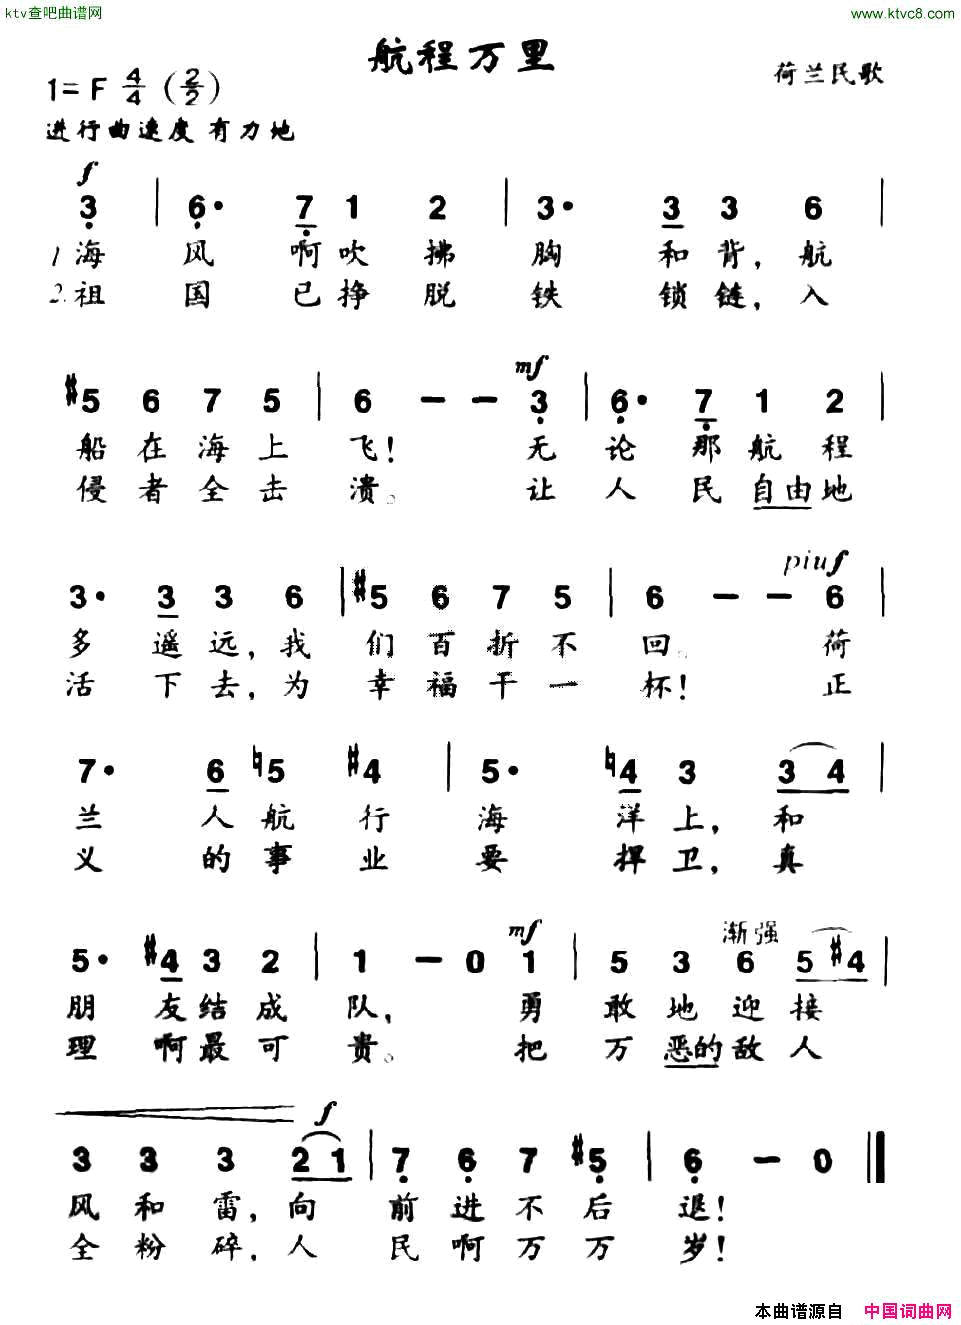 ktv查吧曲谱网
www.ktvc8.com
航程万里
荷兰民歌
1= F 4/4 (2/2)
进行曲速度 有力地
f
3 | 6· 7 1 2 | 3· 3 3 6 |
1 海 风 啊 吹 拂 胸 和 背, 航
2. 祖 国 已 挣 脱 铁 锁 链, 入
mf
#5 6 7 5 | 6 — — 3 | 6· 7 1 2 |
船 在 海 上 飞! 无 论 那 航 程
侵 者 全 击 溃。 让 人 民 自由 地
piuf
3· 3 3 6 | #5 6 7 5 | 6 — — 6 |
多 遥 远, 我 们 百 折 不 回。 荷
活 下 去, 为 幸 福 干 一 杯! 正
7· 6 ♮5 #4 | 5· ♮4 3 3 4 |
兰 人 航 行 海 洋 上, 和
义 的 事 业 要 捍 卫, 真
mf 渐强
5· #4 3 2 | 1 — 0 1 | 5 3 6 5 #4 |
朋 友 结 成 队, 勇 敢 地 迎 接
理 啊 最 可 贵。 把 万 恶的 敌 人
f
3 3 3 2 1 | 7 6 7 #5 | 6 — 0 ‖
风 和 雷, 向 前 进 不 后 退!
全 粉 碎, 人 民 啊 万 万 岁!
本曲谱源自 中国词曲网